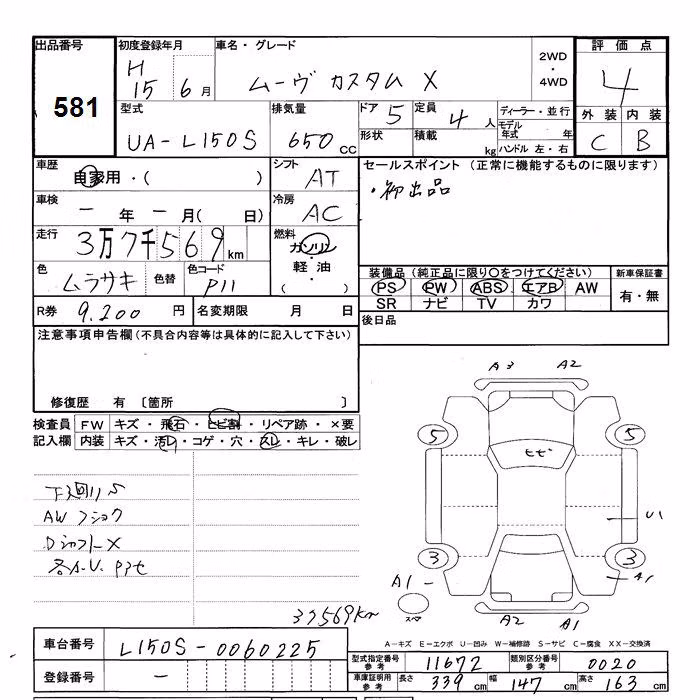 出品番号 初度登録年月 車名・グレード 評価点
581 H 15 6月 ムーヴ カスタム X 2WD・4WD 4
型式 排気量 ドア 5 定員 4人 ディーラー・並行 外装 内装
UA-L150S 650cc 形状 積載 kg モデル年式 年 C B
ハンドル 左・右
車歴 自家用・( ) シフト AT セールスポイント (正常に機能するものに限ります)
車検 ー年ー月( 日) 冷房 AC ・初出品
走行 3万7千569km 燃料 ガソリン・軽油・( )
色 ムラサキ 色替 色コード P11
装備品 (純正品に限り○をつけてください) 新車保証書
PS PW ABS エアB AW 有・無
SR ナビ TV カワ
R券 9,200円 名変期限 月 日 後日品
注意事項申告欄 (不具合内容等は具体的に記入して下さい)
修復歴 有 〔箇所 〕
検査員 FW キズ・飛石・ヒビ割・リペア跡・×要
記入欄 内装 キズ・汚レ・コゲ・穴・スレ・キレ・破レ
A3 A2
5 5
ヒビ
下廻りS
AWフショク
DシャフトX
U1
3 3
A1 A1
スペア
A2 A1
37569km
A-キズ E-エクボ U-凹み W-補修跡 S-サビ C-腐食 XX-交換済
車台番号 L150S-0060225
型式指定番号 参考 11672 類別区分番号 参考 0020
登録番号 ー
車庫証明用 参考 長さ 339cm 幅 147cm 高さ 163cm